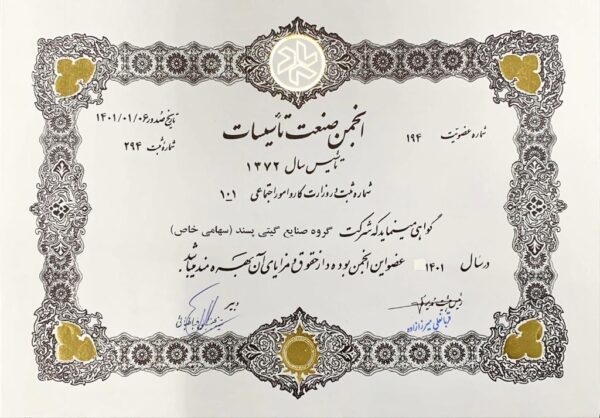 انجمن صنعت تأسیسات
تاریخ صدور ۱۴۰۱/۰۱/۰۶
شماره عضویت ۱۹۴
شماره ثبت ۲۹۴
تأسیس سال ۱۳۷۲
شماره ثبت در وزارت کار و امور اجتماعی ۱-۱۰
گواهی مینماید که شرکت گروه صنایع گیتی پسند (سهامی خاص)
در سال ۱۴۰۱ عضو این انجمن بوده و از حقوق و مزایای آن بهره مند میباشد.
رئیس هیئت مدیره
دبیر
قباقلی میرزازاده